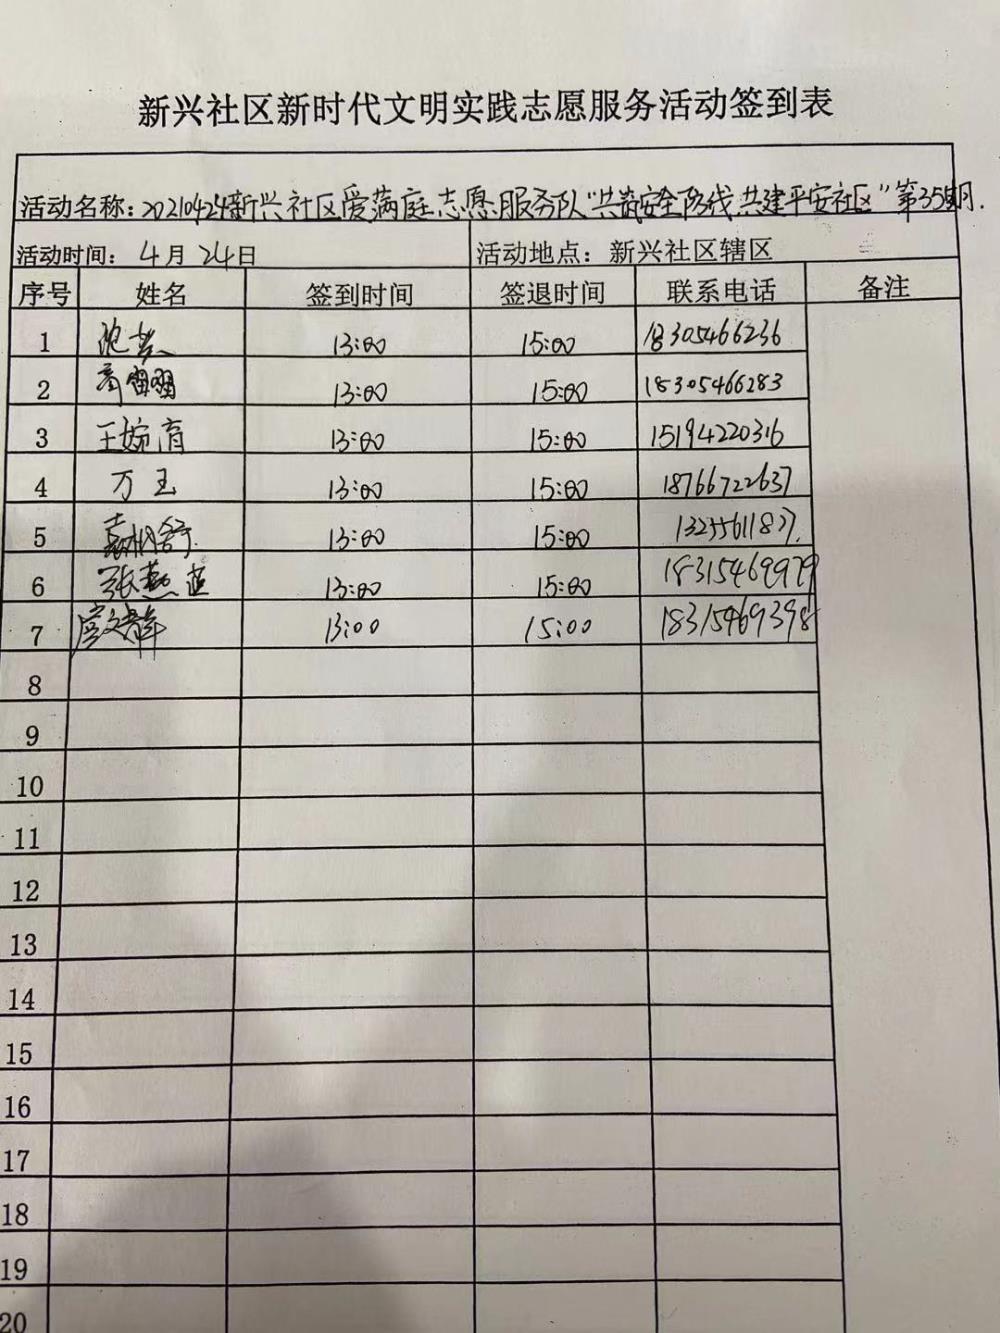 新兴社区新时代文明实践志愿服务活动签到表
活动名称：20210424新兴社区爱满庭志愿服务队“共筑安全防线 共建平安社区”第35期.
活动时间：4月24日 活动地点：新兴社区辖区
序号 姓名 签到时间 签退时间 联系电话 备注
1 13:00 15:00 18305466236
2 13:00 15:00 18305466283
3 王婉清 13:00 15:00 15194220316
4 万玉 13:00 15:00 18766722637
5 13:00 15:00
6 张燕 13:00 15:00 18315469979
7 13:00 15:00 18315469398
8
9
10
11
12
13
14
15
16
17
18
19
20